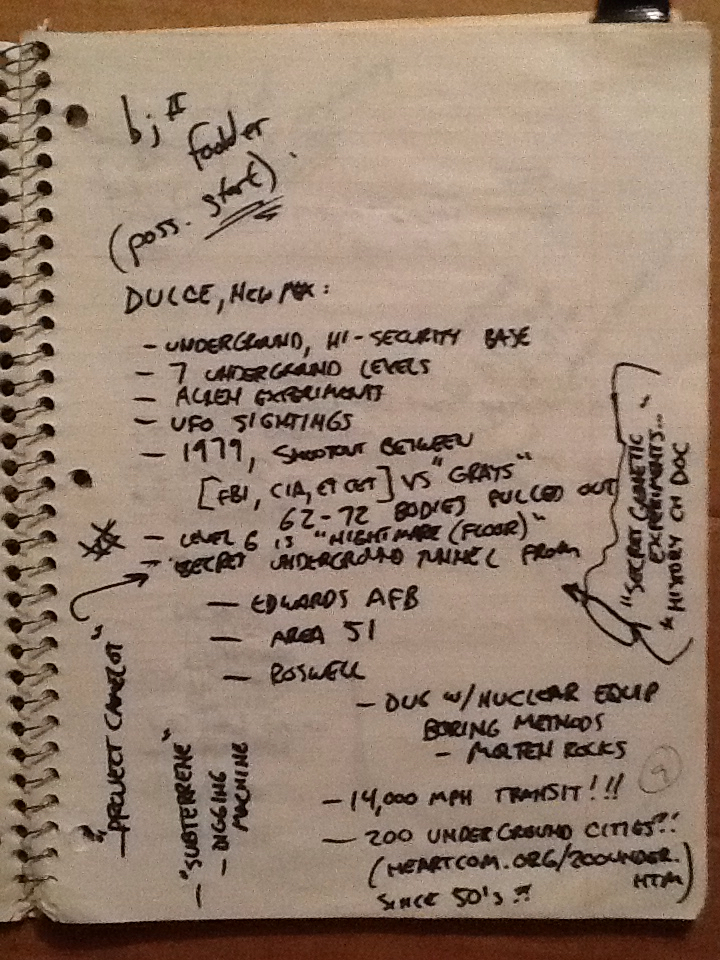 bj II
fodder
(poss. start)
DULCE, NEW MX:
- UNDERGROUND, HI-SECURITY BASE
- 7 UNDERGROUND LEVELS
- ALIEN EXPERIMENTS
- UFO SIGHTINGS
- 1979, SHOOTOUT BETWEEN
[FBI, CIA, ET CET] VS "GRAYS"
62-72 BODIES PULLED OUT
- LEVEL 6 IS "NIGHTMARE (FLOOR)"
- SECRET UNDERGROUND TUNNEL FROM
- EDWARDS AFB
- AREA 51
- ROSWELL
- DUG W/NUCLEAR EQUIP
BORING METHODS
- MOLTEN ROCKS
- 14,000 MPH TRANSIT!!!
- 200 UNDERGROUND CITIES?!
(HEARTCOM.ORG/200UNDER.
HTM)
SINCE 50'S?!
"PROJECT CAMELOT"
- "SUBTERRENE"
- DIGGING
MACHINE
"SECRET GENETIC
EXPERIMENTS..."
* HISTORY CH DOC
9